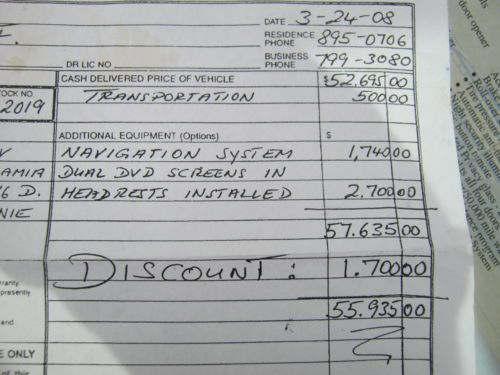 DATE 3-24-08
RESIDENCE PHONE 895-0706
DR LIC NO BUSINESS PHONE 799-3080
CASH DELIVERED PRICE OF VEHICLE $52.695 00
OCK NO
2019
TRANSPORTATION 500 00
ADDITIONAL EQUIPMENT (Options) $
NAVIGATION SYSTEM 1,740 00
AMIA DUAL DVD SCREENS IN
6 D. HEADRESTS INSTALLED 2.700 00
NIE
57.635 00
DISCOUNT: 1.700 00
55.935 00
rranty
presently
and
E ONLY
of this
door opener